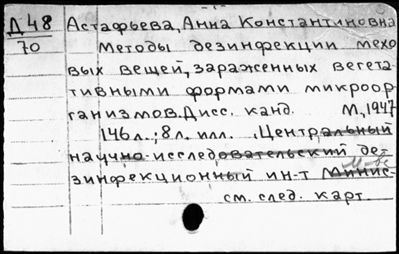 Д48
70
Астафьева, Анна Константиновна
Методы дезинфекции мехо
вых вещей, зараженных вегета
тивными формами микроор
ганизмов. Дисс. канд. М., 1947
146л.; 8л. илл. , Центральный
научно-исследовательский де-
М-во
зинфекционный ин-т Минис-
см. след. карт.